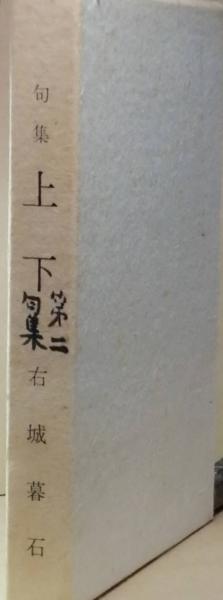 句集
上下
第二
句集
右城暮石